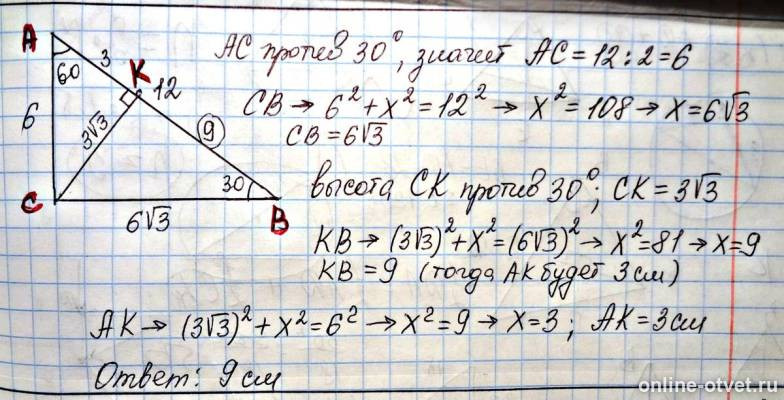 A
3
K
60
12
6
3√3
9
30
C
6√3
B
AC против 30°, значит AC = 12 : 2 = 6
CB → 6² + x² = 12² → x² = 108 → x = 6√3
CB = 6√3
высота CK против 30°; CK = 3√3
KB → (3√3)² + x² = (6√3)² → x² = 81 → x = 9
KB = 9 (тогда AK будет 3 см)
AK → (3√3)² + x² = 6² → x² = 9 → x = 3 ; AK = 3 см
Ответ: 9 см
online-otvet.ru